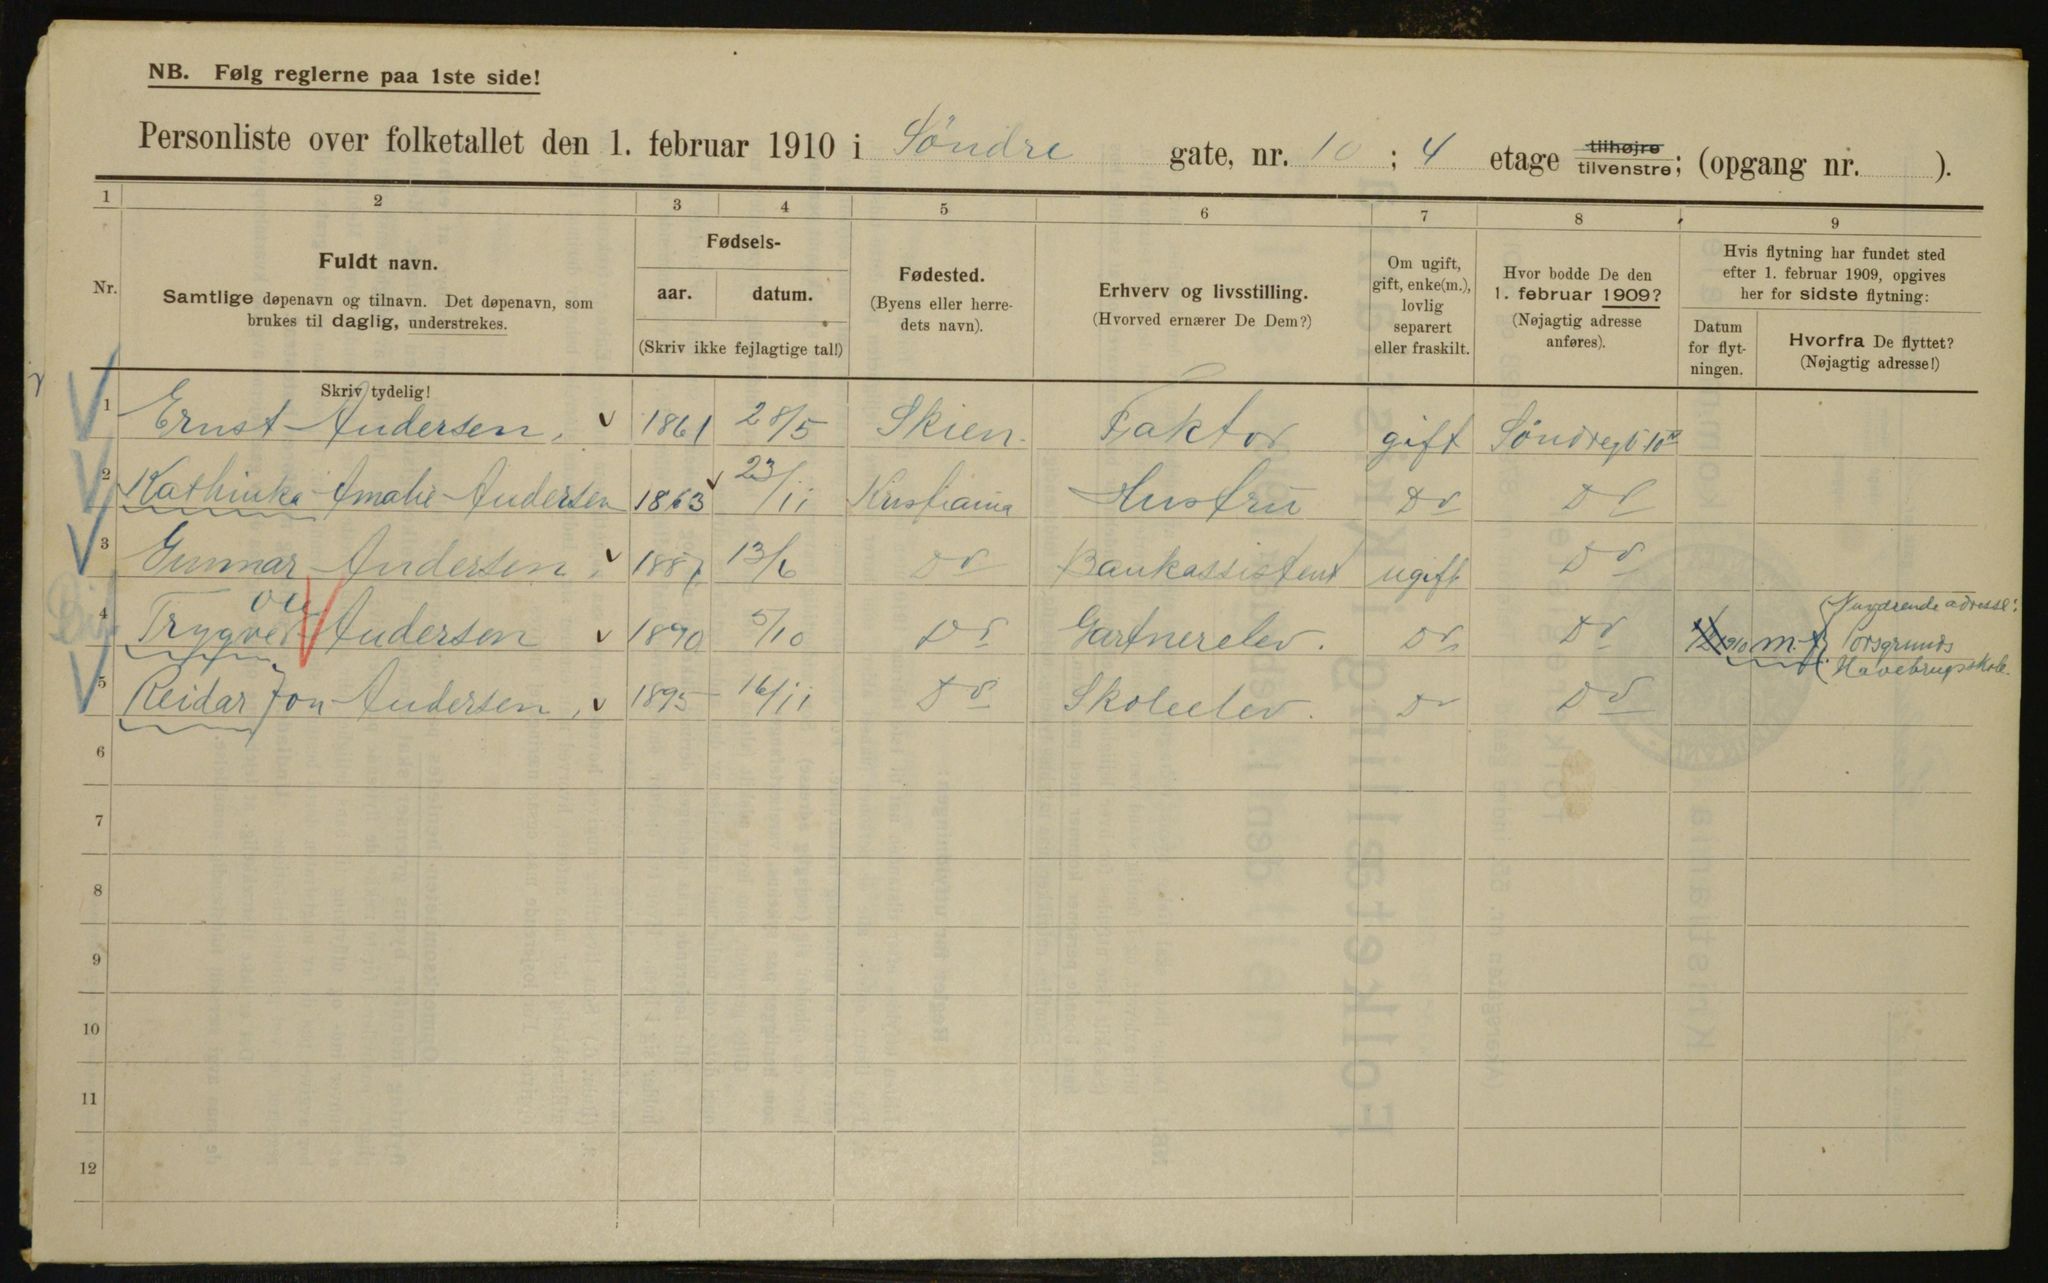 NB. Følg reglerne paa 1ste side!
Personliste over folketallet den 1. februar 1910 i Søndre gate, nr. 10 ; 4 etage tilhøjre tilvenstre; (opgang nr. ).
1 2 3 4 5 6 7 8 9
Nr.
Fuldt navn.
Samtlige døpenavn og tilnavn. Det døpenavn, som
brukes til daglig, understrekes.
Skriv tydelig!
Fødsels-
aar. datum.
(Skriv ikke fejlagtige tal!)
Fødested.
(Byens eller herre-
dets navn).
Erhverv og livsstilling.
(Hvorved ernærer De Dem?)
Om ugift,
gift, enke(m.),
lovlig
separert
eller fraskilt.
Hvor bodde De den
1. februar 1909?
(Nøjagtig adresse
anføres).
Hvis flytning har fundet sted
efter 1. februar 1909, opgives
her for sidste flytning:
Datum
for flyt-
ningen.
Hvorfra De flyttet?
(Nøjagtig adresse!)
1 Ernst Andersen, 1861 28/5 Skien Faktor gift Søndregt 10
2 Kathinka Amalie Andersen 1863 23/11 Kristiania Hustru Do Do
3 Gunnar Andersen, 1887 13/6 Do Bankassistent ugift Do
4 Trygve Andersen 1890 5/10 Do Gartnerelev. Do Do
Nuværende adresse:
Porsgrunds
Havebrugsskole.
5 Reidar Jon Andersen, 1895 16/11 Do Skoleelev. Do Do
6
7
8
9
10
11
12